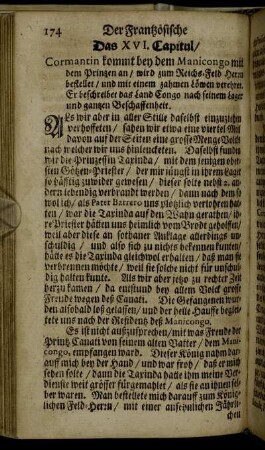 174 Der Frantzösische
Das XVI. Capitul/
Cormantin kommt bey dem Manicongo mit
dem Printzen an/ wird zum Reichs-Feld-Herrn
bestellet/ und mit einem zahmen Löwen verehret.
Er beschreibet das Land Congo nach seinem Lager
und gantzen Beschaffenheit.
Als wir aber in aller Stille daselbst einzuziehen
verhofften/ sahen wir etwa eine viertel Meil
davon auf der Seiten eine grosse Menge Volck
nach welcher wir uns hinlenckten. Daselbst funden
wir die Prinzessin Taxinda/ mit dem jenigen ober-
sten Götzen-Priester/ der mir jüngst in ihrem Lager
so häfftig zuwider gewesen/ dieser solte nebst
andern lebendig verbrandt werden/ dann nach dem
wol ich/ als Pater Barrero uns plötzlich verlohren hat-
ten/ war die Taxinda auf den Wahn gerathen/ ih-
re Priester hätten uns heimlich vom Brodt geholffen/
weil aber diese an sothaner Auflage allerdings un-
schuldig/ und also sich zu nichts bekennen kunten/
hätte es die Taxinda gleichwol erhalten/ daß man sie
verbrennen möchte/ weil sie solche nicht für unschul-
dig halten kunte. Als wir aber jetzo zu rechter Zeit
herzu kamen/ da entstund bey allem Volck grosse
Freude wegen deß Canati. Die Gefangenen wur-
den alsobald loß gelassen/ und der helle Hauffe beglei-
tete uns nach der Residentz deß Manicongo.
Es ist nicht außzusprechen/ mit was Freude der
Printz Canati von seinem alten Vatter/ dem Mani-
congo, empfangen ward. Dieser König nahm dar-
auff mich bey der Hand/ und war froh/ daß er mich
sehen solte/ dann die Taxinda hatte ihm meine Ver-
dienste weit grösser fürgemahlet/ als sie an ihnen sel-
ber waren. Man bestellete mich darauff zum König-
lichen Feld-Herrn/ mit einer ansehnlichen Jährli-
chen